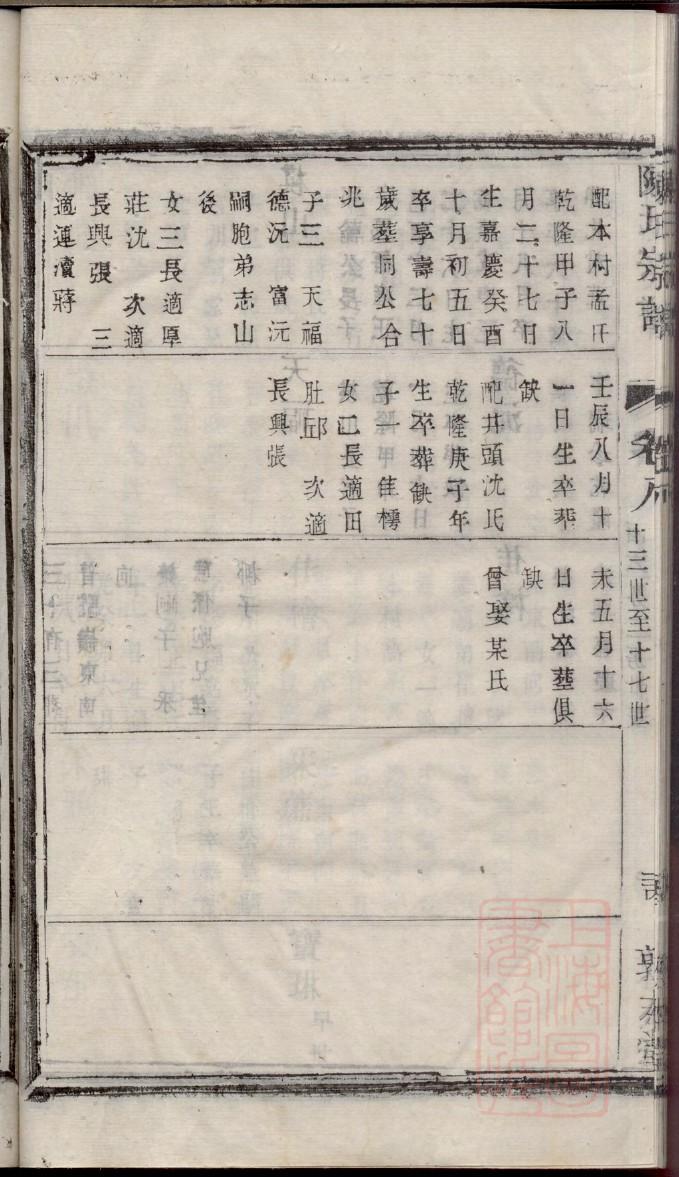 配本村孟氏
乾隆甲子八
月二十七日
生嘉慶癸酉
十月初五日
卒享壽七十
歲葬同公合
兆
子三 天福
德沅 富沅
嗣胞弟志山
後
女三長適厚
莊沈 次適
長興張 三
適運瀆蔣
壬辰八月十
一日生卒葬
缺
配井頭沈氏
乾隆庚子年
生卒葬缺
子一 佳樗
女二長適田
肚邱 次適
長興張
未五月十六
日生卒葬俱
缺
曾娶某氏
宗譜
十三世至十七世
上海圖書館藏